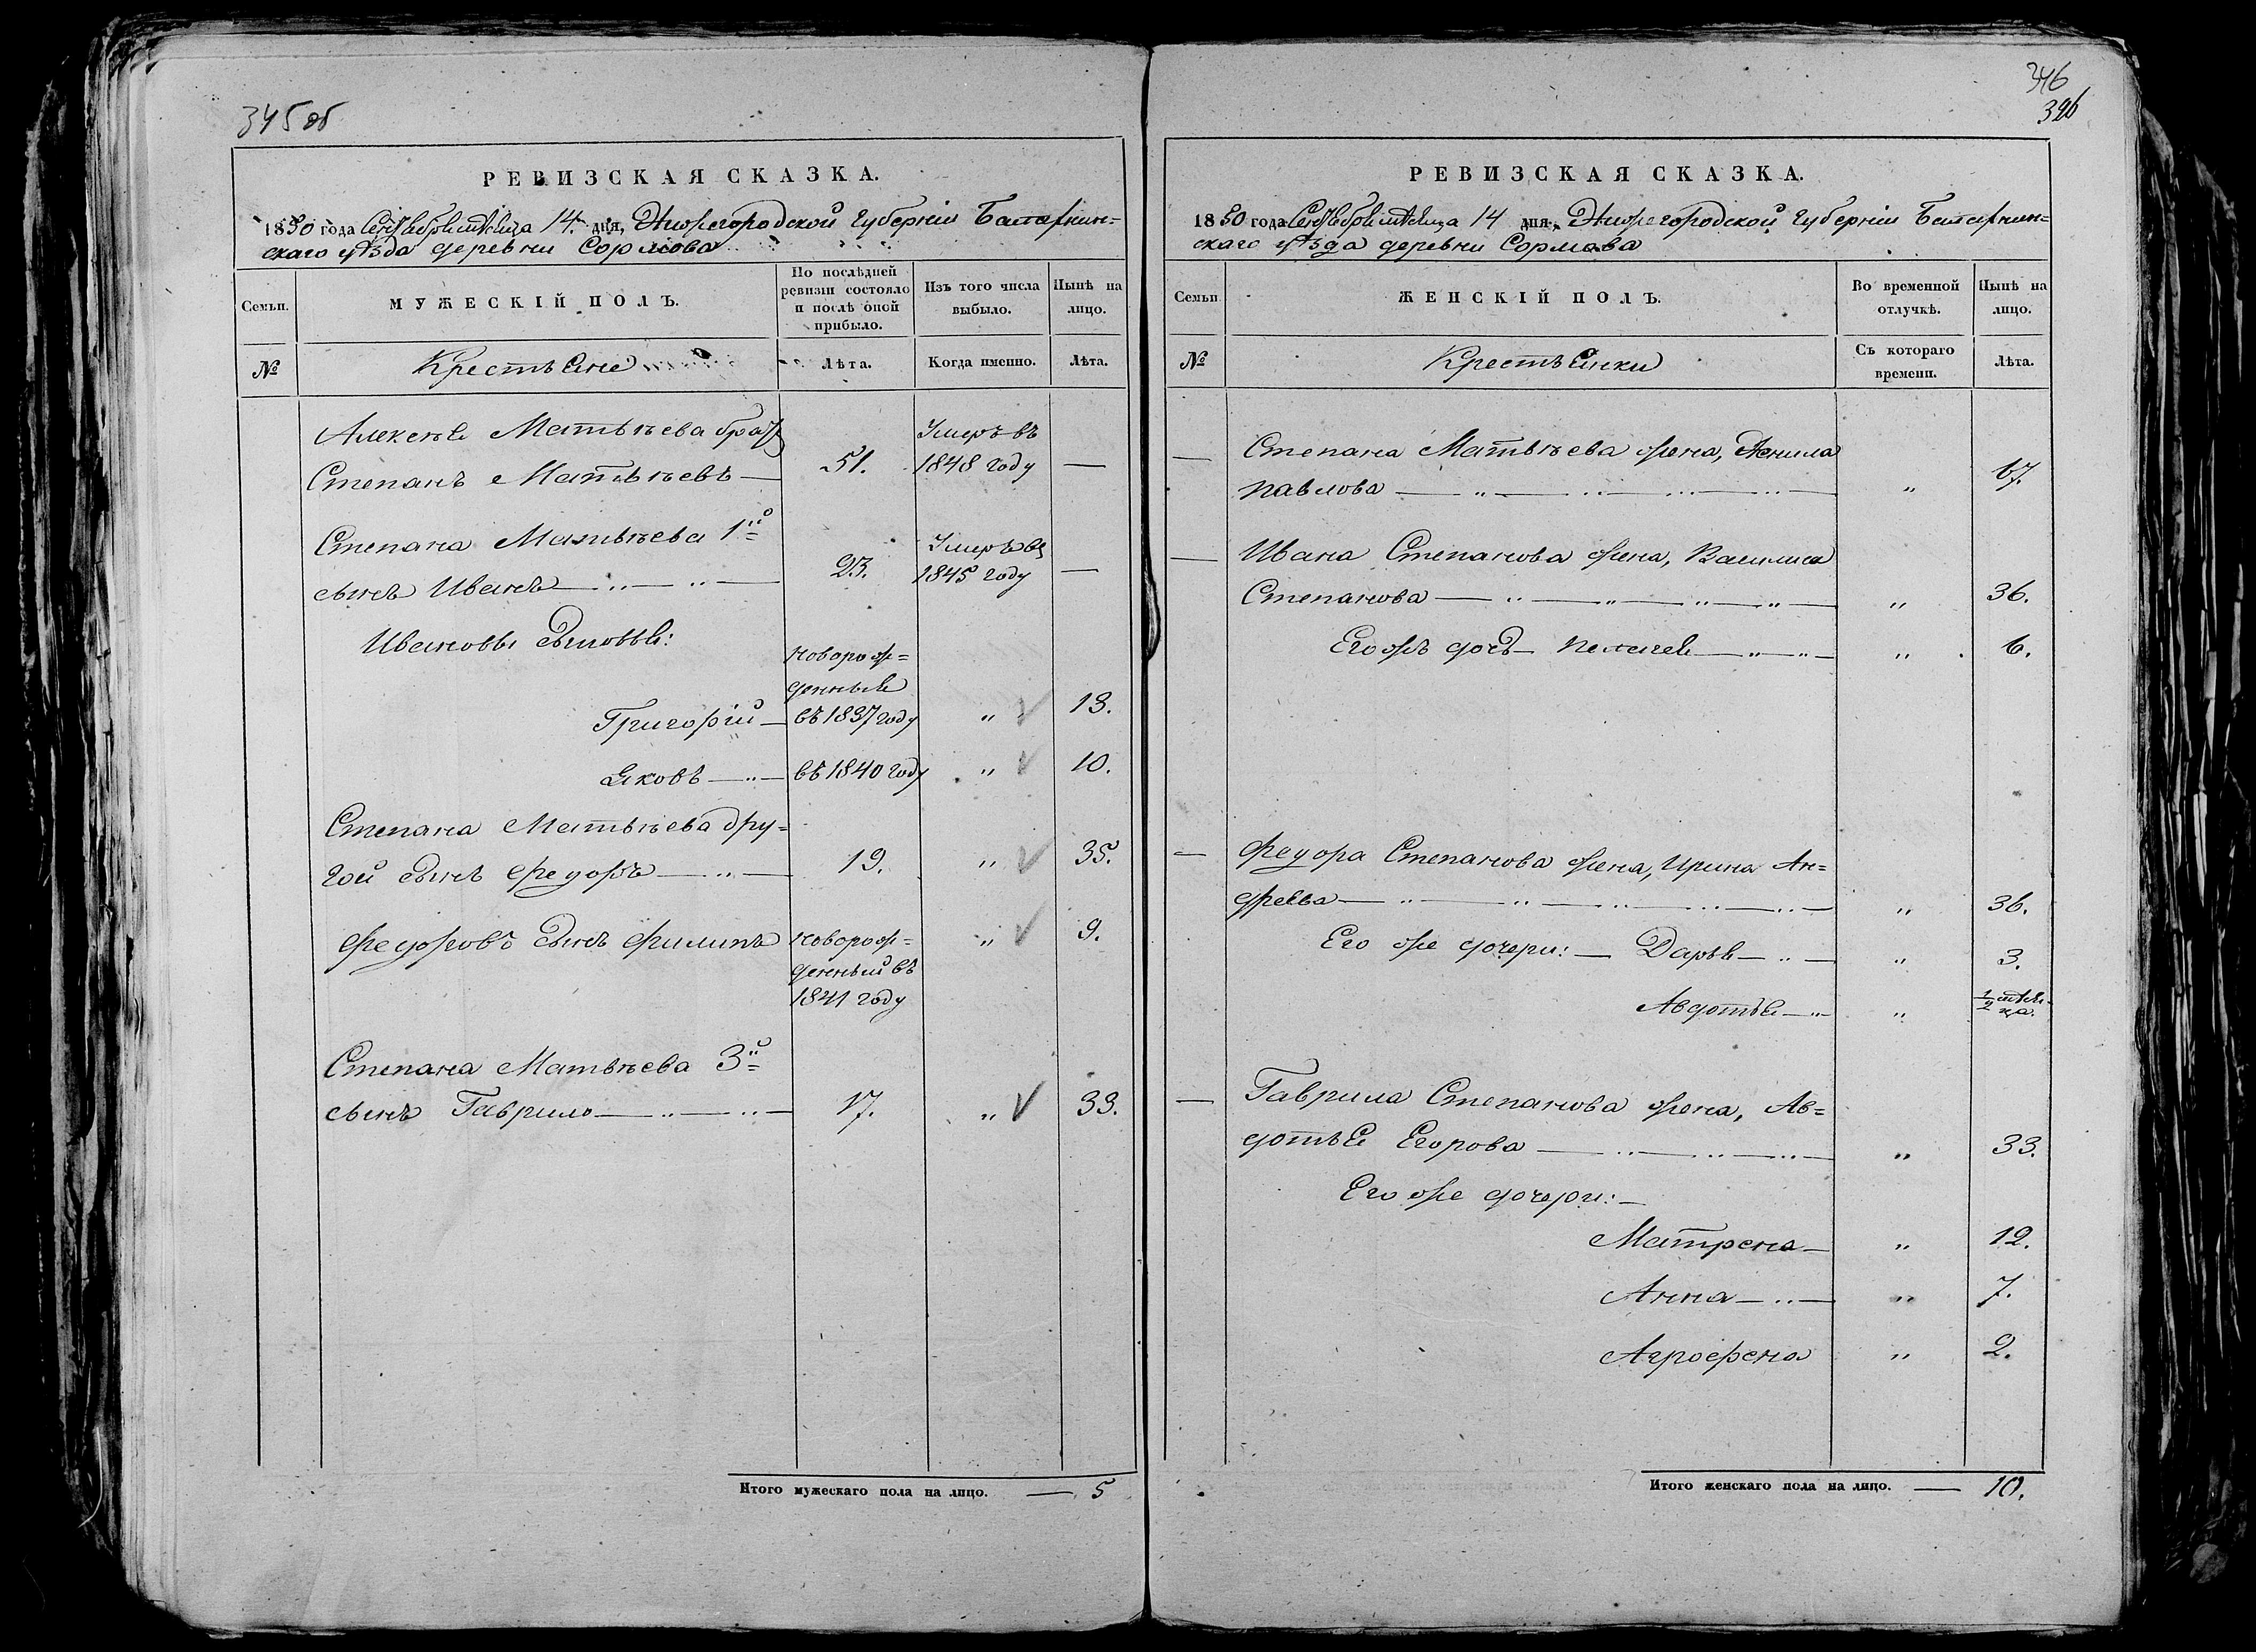 345 об
РЕВИЗСКАЯ СКАЗКА.
1850 года Сентября мѣсяца 14 дня, Нижегородской губерніи Балахнин=
скаго уѣзда деревни Сормова
Семьи.
МУЖЕСКІЙ ПОЛЪ.
По послѣдней
ревизіи состояло
и послѣ оной
прибыло.
Изъ того числа
выбыло.
Нынѣ на
лицо.
№
Крестьяне
Лѣта.
Когда именно.
Лѣта.
Алексѣя Матвѣева братъ
Степанъ Матвѣевъ — 51. Умеръ въ
1848 году —
Степана Матвѣева 1й
сынъ Иванъ — 23. Умеръ въ
1845 году —
Ивановы сыновья:
Григорій — новорож=
денные
въ 1837 году " 13.
Яковъ — въ 1840 году " 10.
Степана Матвѣева дру=
гой сынъ Федоръ — 19. " 35.
Федоровъ сынъ Филипъ новорож=
денный въ
1841 году " 9.
Степана Матвѣева 3й
сынъ Гаврило — 17. " 33.
Итого мужескаго пола на лицо. — 5
346
346
РЕВИЗСКАЯ СКАЗКА.
1850 года Сентября мѣсяца 14 дня, Нижегородской губерніи Балахнин=
скаго уѣзда деревни Сормова
Семьи
ЖЕНСКІЙ ПОЛЪ.
Во временной
отлучкѣ.
Нынѣ на
лицо.
№
Крестьянки
Съ котораго
времени.
Лѣта.
— Степана Матвѣева жена,
Павлова — " 67.
— Ивана Степанова жена, Василиса
Степанова — " 36.
Его жъ дочь Пелагея — " 6.
— Федора Степанова жена, Ирина Ан=
дреева — " 36.
Его же дочери: — Дарья — " 3.
Авдотья — " 1/2 мѣся=
ца.
— Гаврила Степанова жена, Ав=
дотья Егорова — " 33.
Его же дочери: —
Матрена — " 12.
Анна — " 7.
Аграфена " 2.
Итого женскаго пола на лицо. — 10.